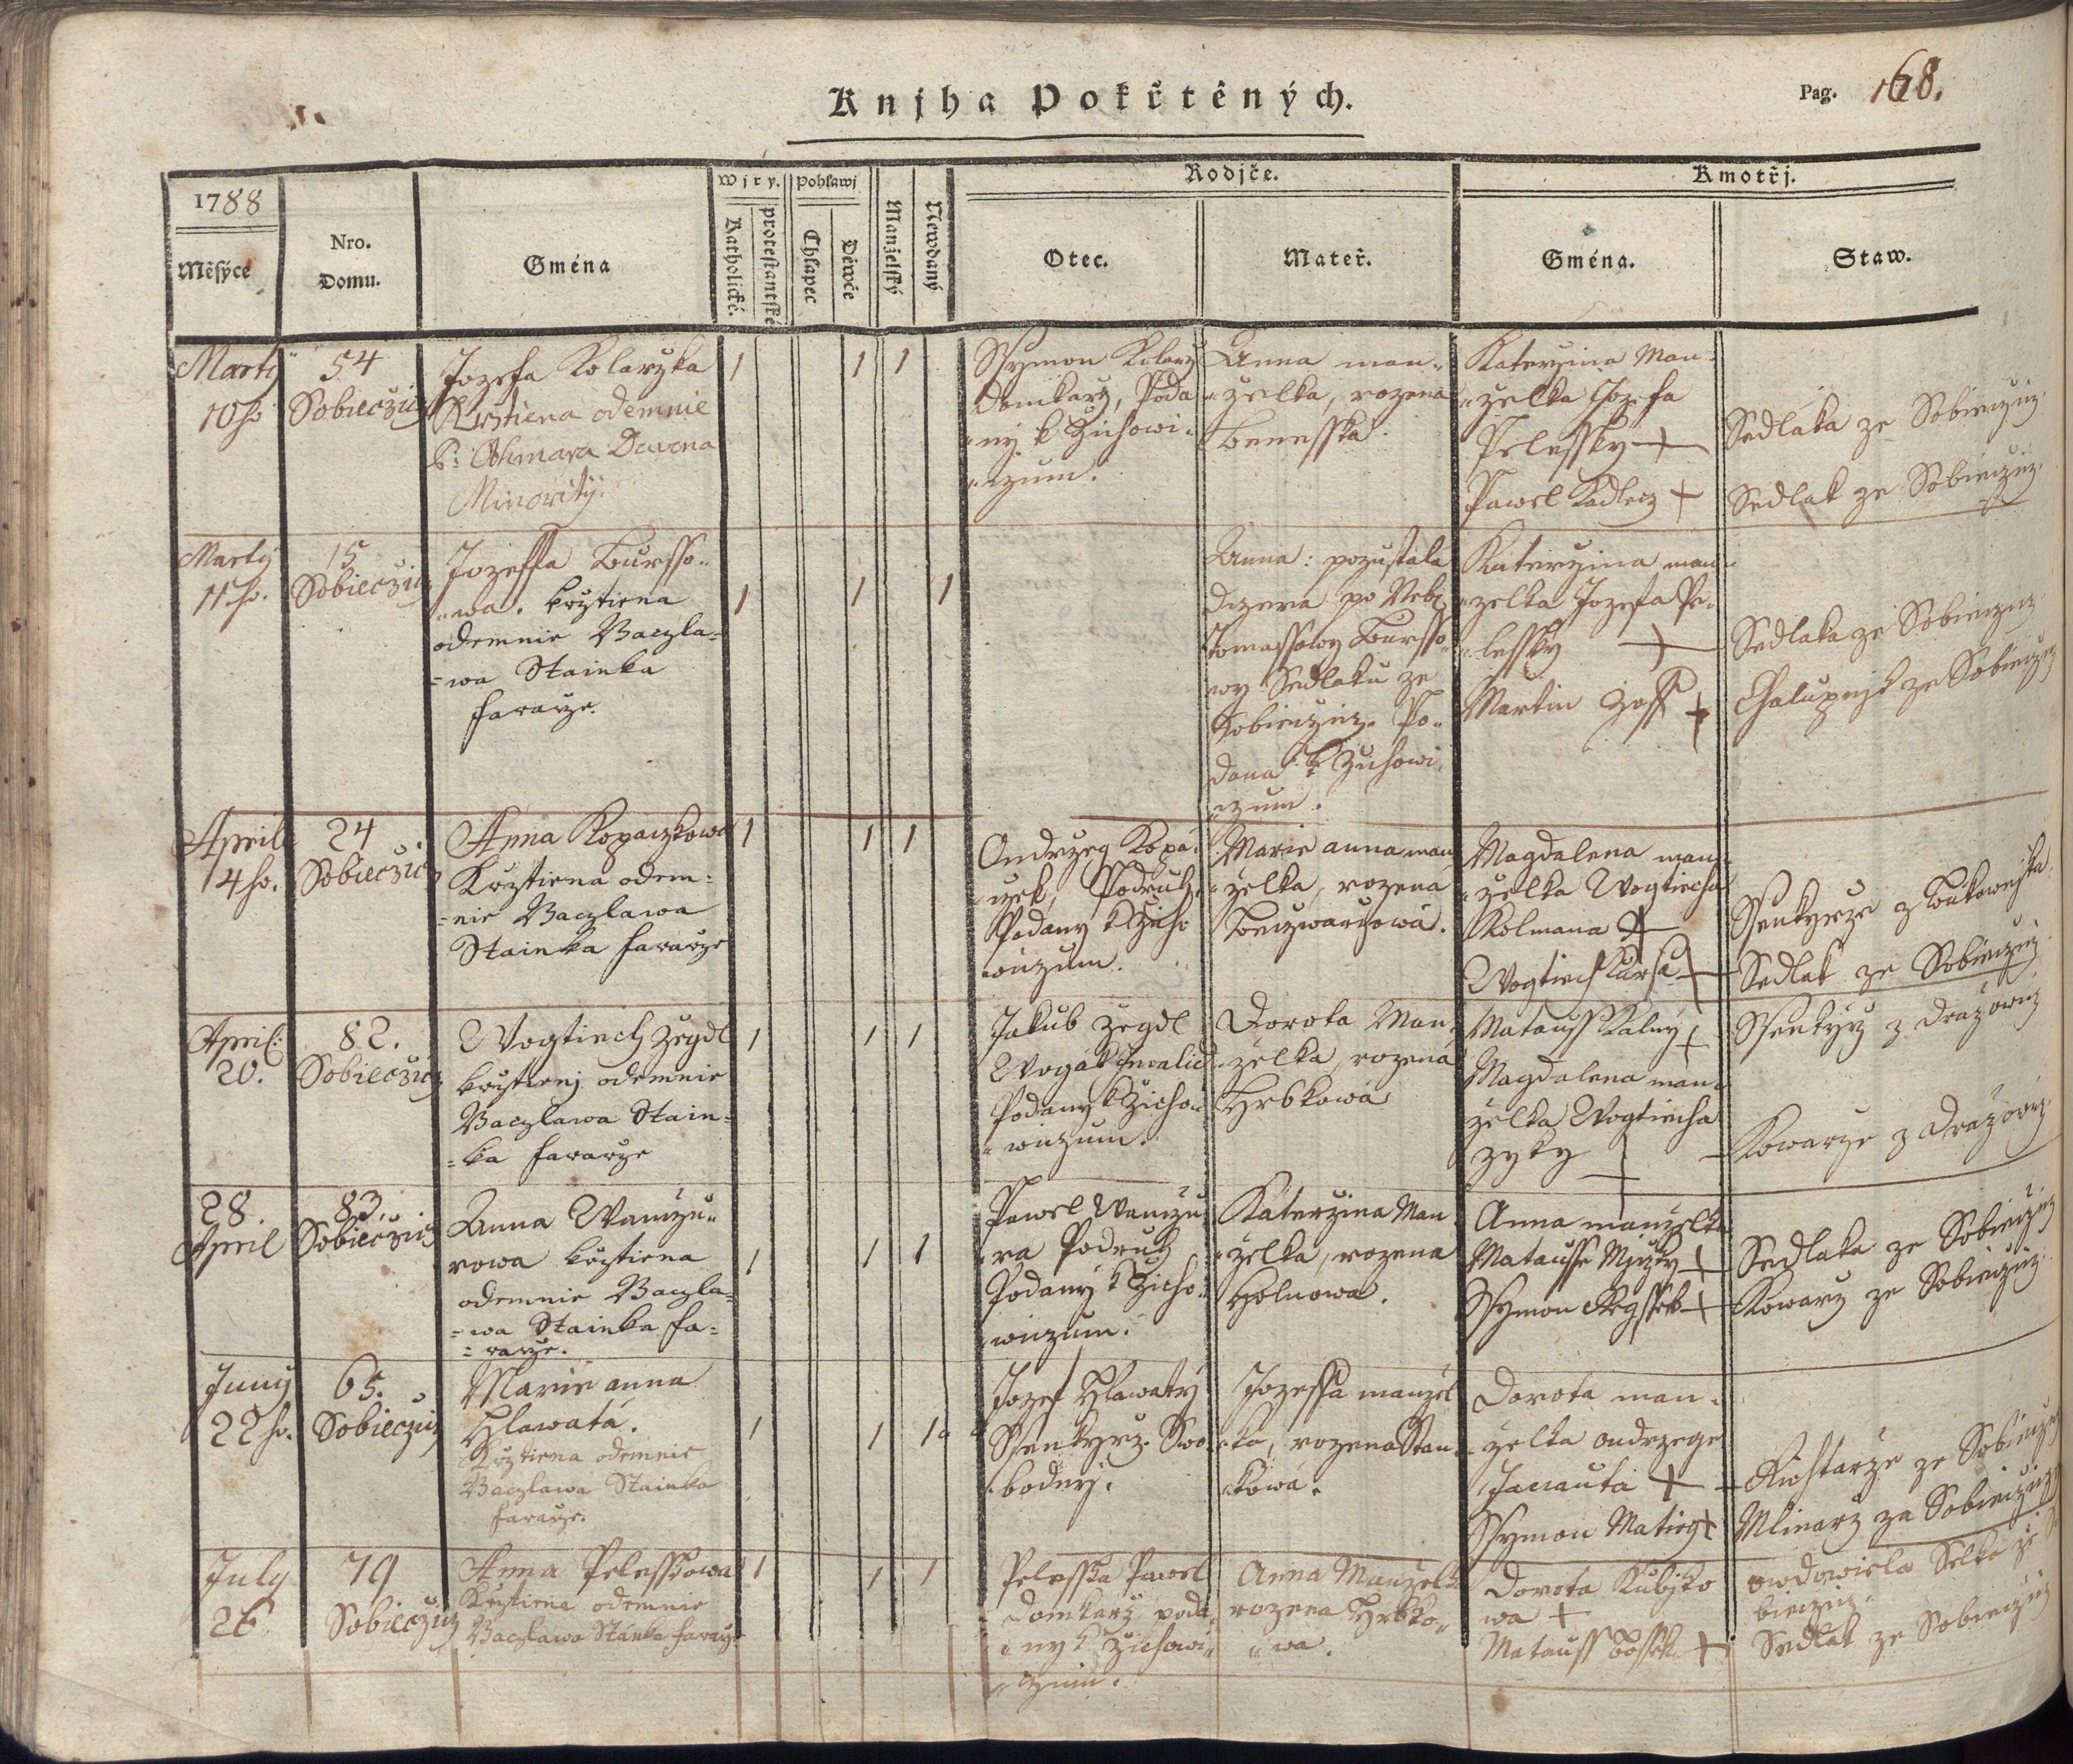 Knjha Pokřtěných.
Pag. 168.
1788
Měsýce
Nro.
Domu.
Gména
Wjry.
Katholické.
protestantské
Pohlawj
Chlapec
Děwče
Manželský
Newdaný
Rodjče.
Otec.
Mateř.
Kmotřj.
Gména.
Staw.
Marty
10ho
54
Sobieczicz
Jozefa Kolarzka
Krztiena odemnie
P: Othmara
Minority.
1 1 1
Ssymon Kolarz
Domkarz, Poda
ny k Zichowi
czum.
Anna man-
zelka, rozena
Benesska.
Katerzina Man-
zelka Jozefa
Pelessky +
Pawel Kadlecz +
Sedlaka ze Sobieczicz
Sedlak ze Sobieczicz
Marty
11ho.
15
Sobieczicz
Jozeffa Bursso-
wa. krztiena
odemnie Waczla=
=wa Stainka
fararze.
1 1 1
Anna: pozustala
Dczera po Neb.
Tomassowy Bursso-
wy Sedlaku ze
Sobieczicz. Po-
dana k Zichowi
czum.
Katerzina man-
zelka Jozefa Pe-
lessky +
Martin +
Sedlaka ze Sobieczicz
Chalupnjk ze Sobieczicz
April
14ho.
24
Sobieczicz
Anna Kopaczkowa
Krztiena odem=
=nie Waczlawa
Stainka fararze
1 1 1
Ondrzeg Kopa-
czek, Podruh,
Podany k Zicho
wiczum.
Marie anna man
zelka, rozena
Beczwarzowa.
Magdalena man-
zelka Wogtiecha
Kolmana +
Wogtiech +
Ssenkyrze z
Sedlak ze Sobieczicz
April:
20.
82.
Sobieczicz
Wogtiech Zegdl
krztienj odemnie
Waczlawa Stain=
=ka fararze
1 1 1
Jakub Zegdl
Wogak Invalid
Podany k Zicho-
wiczum.
Dorota Man-
zelka, rozena
Hrbkowa
Matauss Kalny +
Magdalena man-
zelka Wogtiecha
zyky +
Ssenkyrz z Drazowicz
Kowarze z Drazowicz
28.
April
83.
Sobieczicz
Anna Wanczu-
rowa krztiena
odemnie Waczla=
=wa Stainka fa=
=rarze.
1 1 1
Pawel Wanczu
ra Podruh
Podany k Zicho-
wiczum.
Katerzina Man
zelka, rozena
Holnowa.
Anna manzelka
Matausse +
Ssymon +
Sedlaka ze Sobieczicz
Kowarz ze Sobieczicz
Juny
22ho.
65.
Sobieczicz
Marie anna
Hlawata.
Krztiena odemnie
Waczlawa Stainka
fararze.
1 1 1
Jozef Hlawaty
Ssenkyrz. Swo
bodny.
Jozeffa manzel
ka, rozena Stan-
kowa.
Dorota man-
zelka ondrzege
+
Ssymon Matieg +
Richtarze ze Sobieczicz
Mlinarz ze Sobieczicz
July
26.
79
Sobieczicz
Anna Pelesskowa
Krztiena odemnie
Waczlawa Stanka fararze
1 1 1
Pelesska Pawel
Domkarz poda-
ny k Zichowi-
czum.
Anna Manzelka
rozena Hrbko-
wa.
Dorota Kubjko
wa +
Matauss +
owdowiela Selka ze So
bieczicz.
Sedlak ze Sobieczicz